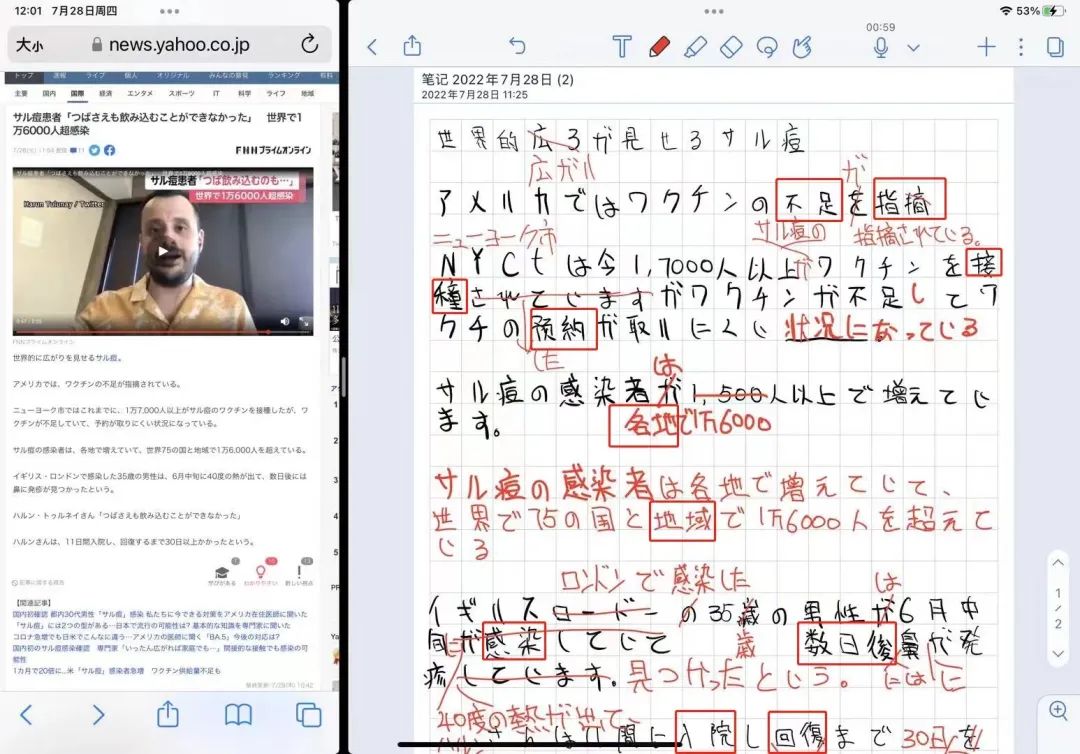 12:01 7月28日周四
53%
大小 news.yahoo.co.jp
トップ 速報 ライブ 個人 オリジナル みんなの意見 ランキング 有料
主要 国内 国際 経済 エンタメ スポーツ IT 科学 ライフ 地域
サル痘患者「つばさえも飲み込むことができなかった」 世界で1
万6000人超感染
FNNプライムオンライン
サル痘患者「つば飲み込むのも…」
世界で1万6000人超感染
Harun Tulunay / Twitter
FNNプライムオンライン
世界的に広がりを見せるサル痘。
アメリカでは、ワクチンの不足が指摘されている。
ニューヨーク市ではこれまでに、1万7,000人以上がサル痘のワクチンを接種したが、ワ
クチンが不足していて、予約が取りにくい状況になっている。
サル痘の感染者は、各地で増えていて、世界75の国と地域で1万6,000人を超えている。
イギリス・ロンドンで感染した35歳の男性は、6月中旬に40度の熱が出て、数日後には
鼻に発疹が見つかったという。
ハルン・トゥルネイさん「つばさえも飲み込むことができなかった」
ハルンさんは、11日間入院し、回復するまで30日以上かかったという。
学びがある わかりやすい 新しい視点
記事に関する報告
【関連記事】
国内初確認 都内30代男性「サル痘」感染 私たちに今できる対策をアメリカ在住医師に聞いた
「サル痘」には2つの型がある…日本で流行の可能性は? 基本的な知識を専門家に聞いた
コロナ急増でも日米でこんなに違う…アメリカの医師に聞く「BA.5」今後の対応は?
国内初のサル痘感染確認 専門家「いったん広がれば家庭でも…」間接的な接触でも感染の可
能性
1カ月で20倍に…米「サル痘」感染者急増 ワクチン供給量不足も
最終更新:7/28(木) 10:42
00:59
笔记 2022年7月28日 (2)
2022年7月28日 11:25
世界的広るが見せるサル痘
広がり
が
アメリカではワクチンの不足を指摘
ニューヨーク市 サル痘の 指摘されている。
NYCtは今1,7000人以上がワクチンを接
種されていますがワクチンが不足してワ
クチの予約が取りにくい状況になっている
した
は
サル痘の感染者が1,500人以上で増えてい
ます。 各地で1万6000
サル痘の感染者は各地で増えていて、
世界で75の国と地域で1万6000人を超えて
いる
ロンドンで感染した は
イギリスロードーの35歳の男性が6月中
間が感染していて 歳 数日後鼻が発
疹しています。見つかったという。 には に
40度の熱が出て、
さんは11日間に入院し回復まで30日を
1
/
2